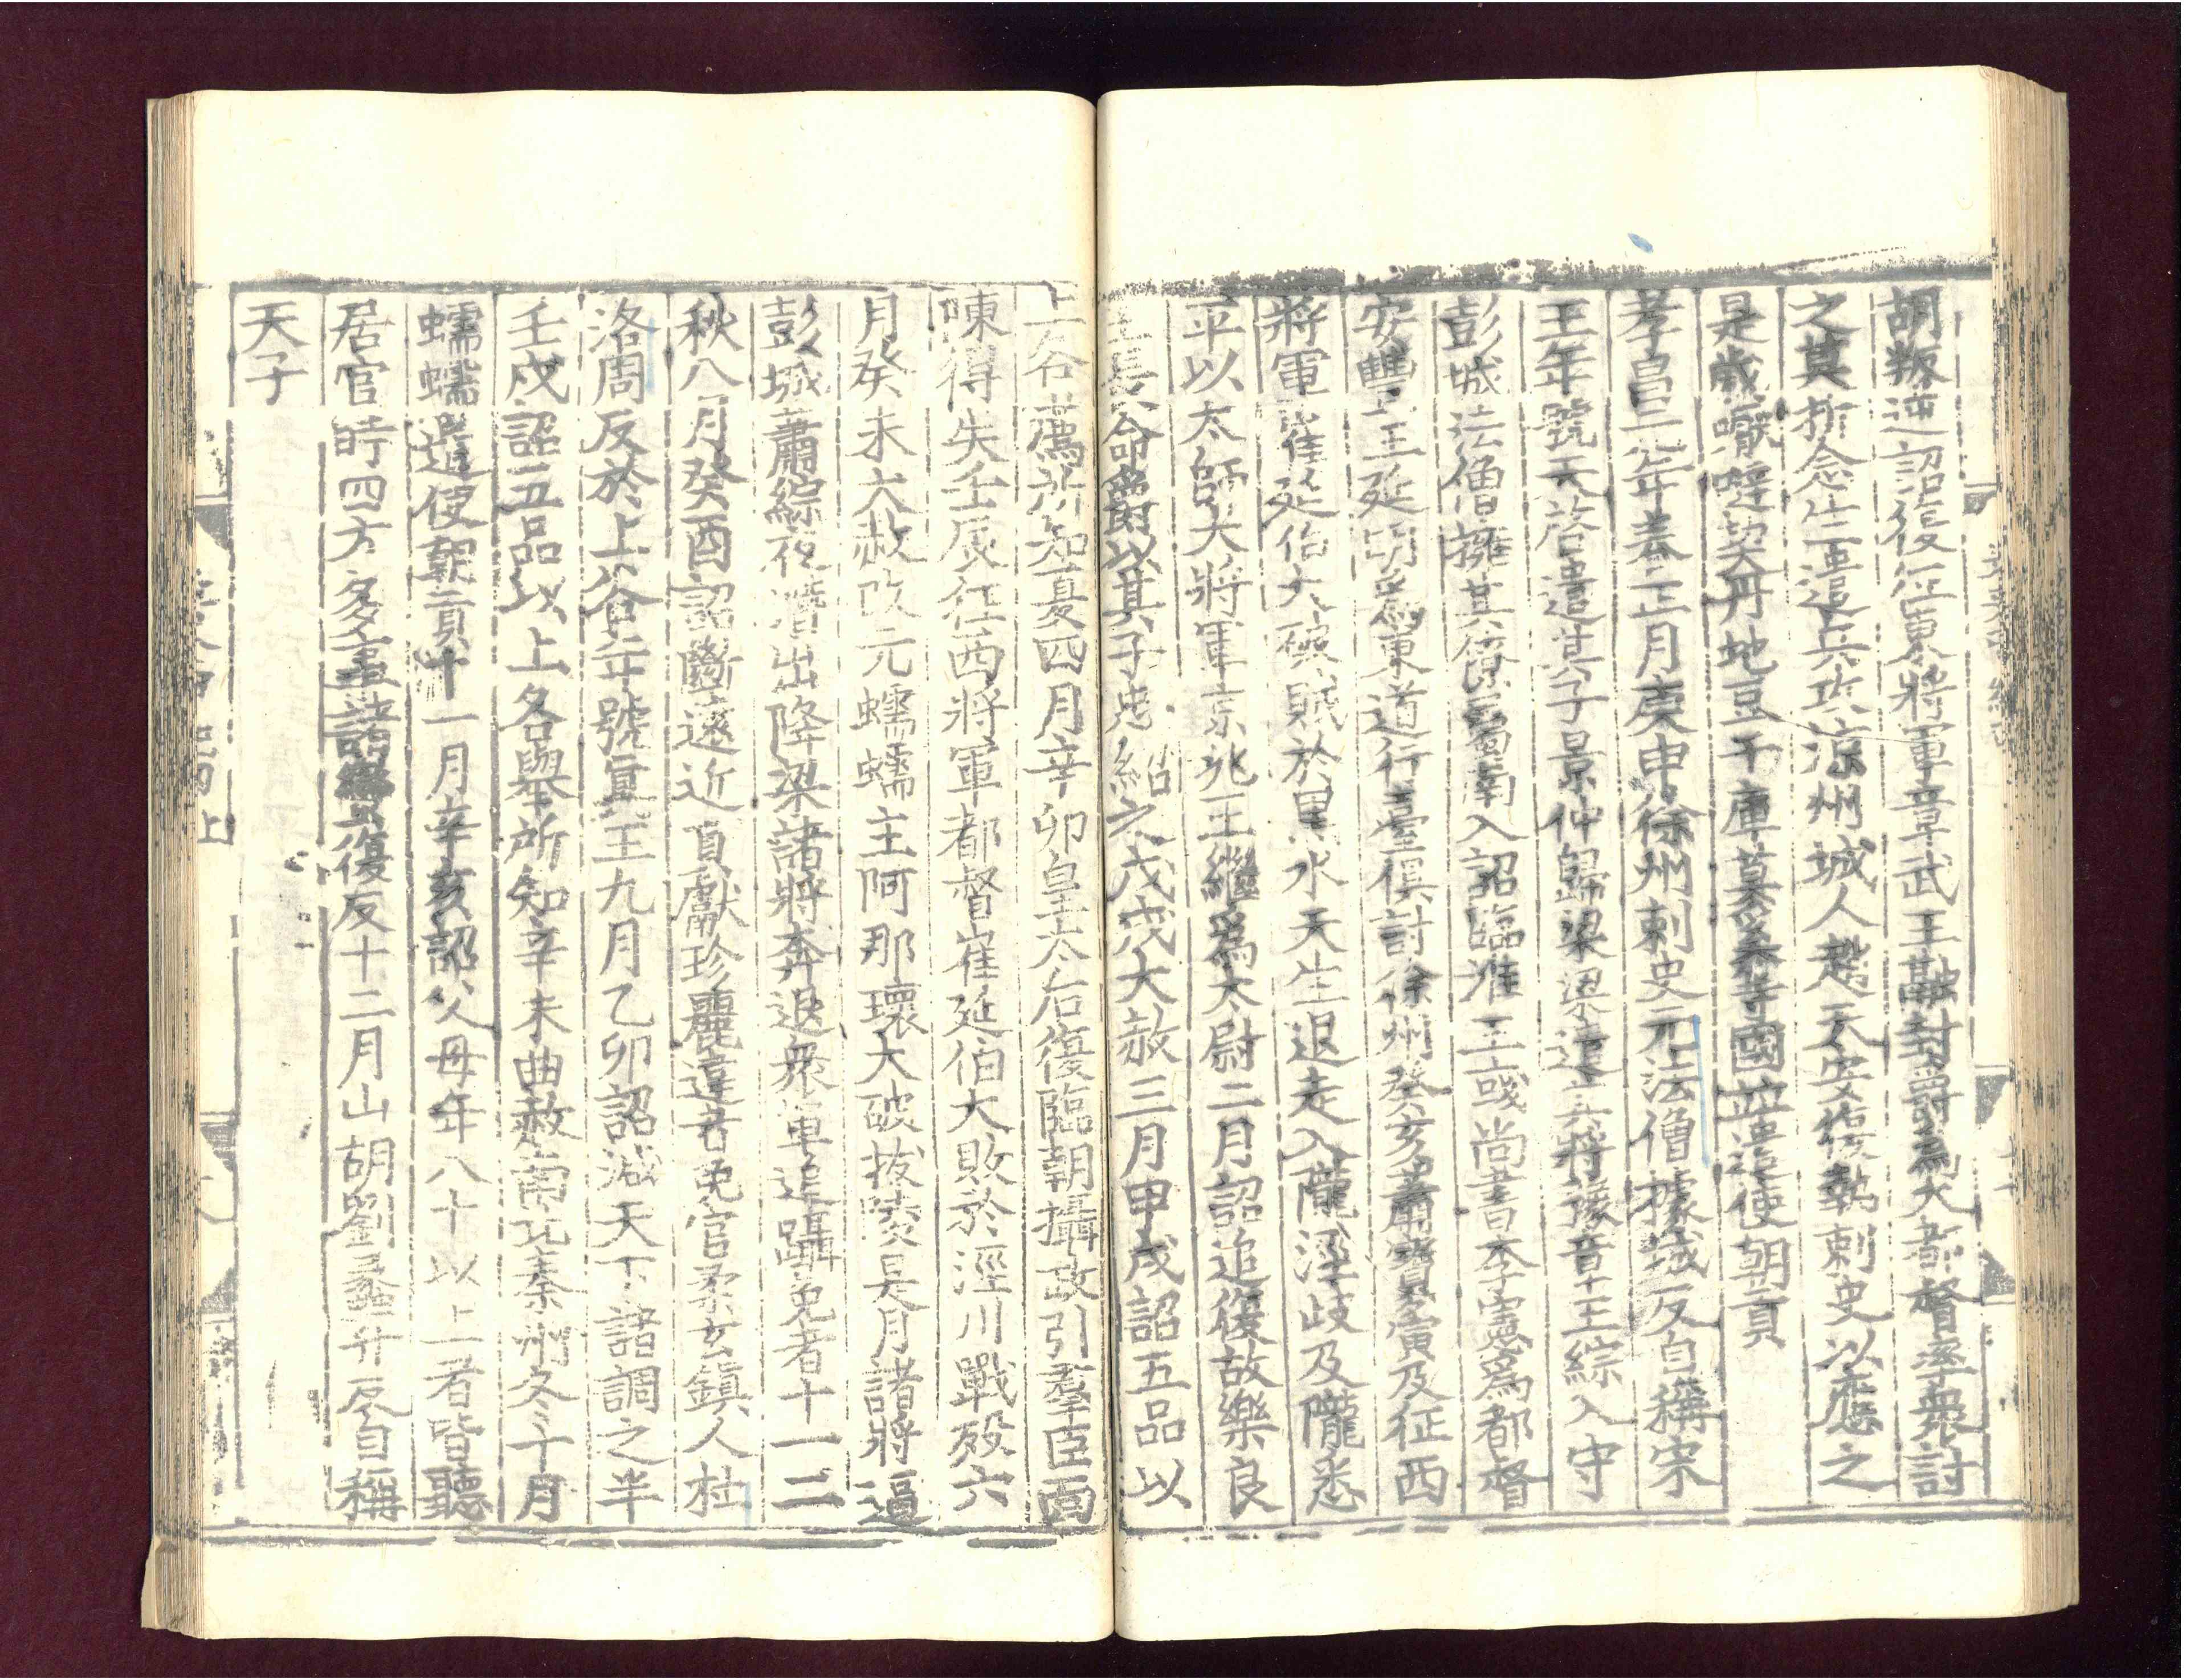 胡叛逆詔復征東將軍章武王融封爵爲大都督率衆討
之莫折念生遣兵攻涼州城人趙天安復執刺史以應之
是歲嚈噠契丹地豆干庫莫奚等國並遣使朝貢
孝昌元年春正月庚申徐州刺史元法僧據城反自稱宋
王年號天啓遣其子景仲歸梁梁遣其將豫章王綜入守
彭城法僧擁其僚屬南入詔臨淮王彧尚書李憲爲都督
安豐王延明爲東道行臺俱討徐州癸亥蕭寶夤及征西
將軍崔延伯大破賊於黑水天生退走入隴涇岐及隴悉
平以太師大將軍京兆王繼爲太尉二月詔追復故樂良
王長命爵以其子忠紹之戊戌大赦三月甲戌詔五品以
上各薦所知夏四月辛卯皇太后復臨朝攝政引羣臣面
陳得失壬辰征西將軍都督崔延伯大敗於涇川戰歿六
月癸未大赦改元蠕蠕主阿那瓌大破拔陵是月諸將逼
彭城蕭綜夜潛出降梁諸將奔退衆軍追躡免者十一二
秋八月癸酉詔斷遠近貢獻珍麗違者免官柔玄鎮人杜
洛周反於上谷年號眞王九月乙卯詔減天下諸調之半
壬戌詔五品以上各舉所知辛未曲赦南北秦州冬十月
蠕蠕遣使朝貢十一月辛亥詔父母年八十以上者皆聽
居官時四方多事諸蠻復反十二月山胡劉蠡升反自稱
天子